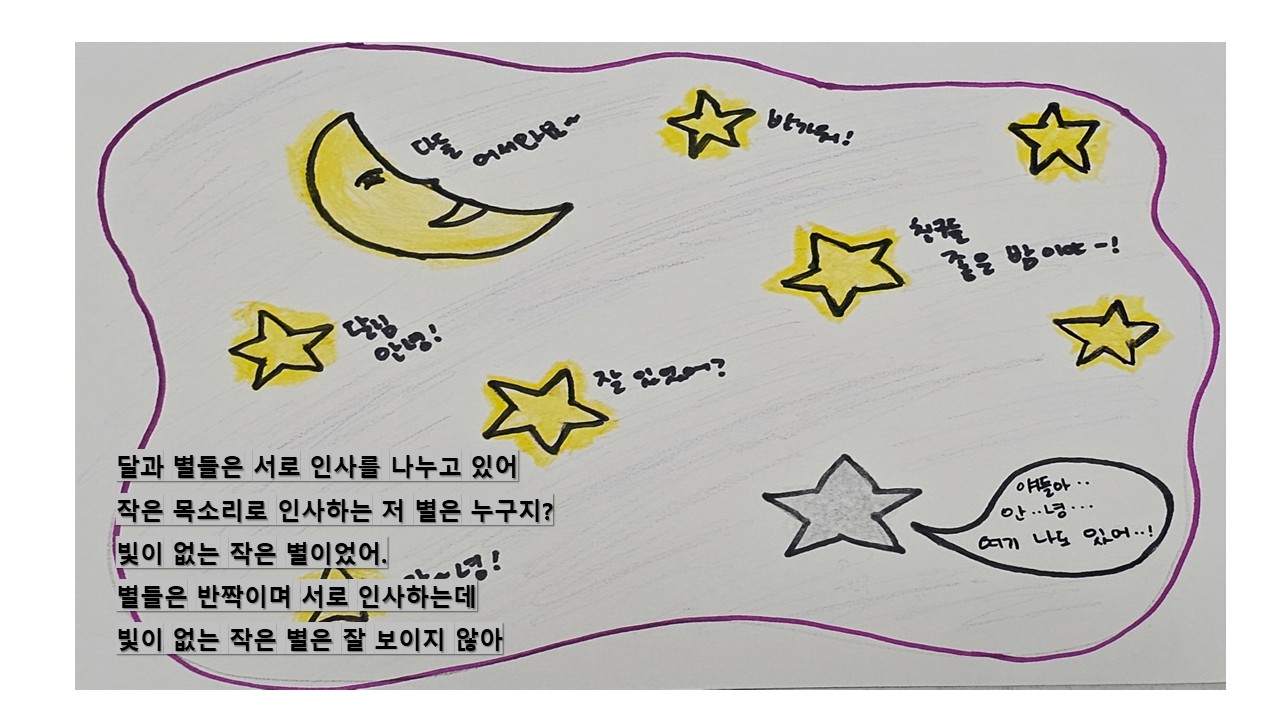 다들
어서와요~
반가워!
친구들
좋은 밤이야~!
달님
안녕!
잘 있었어?
달과 별들은 서로 인사를 나누고 있어
작은 목소리로 인사하는 저 별은 누구지?
빛이 없는 작은 별이었어.
별들은 반짝이며 서로 인사하는데
빛이 없는 작은 별은 잘 보이지 않아
얘들아..
안..녕...
여기 나도 있어..!